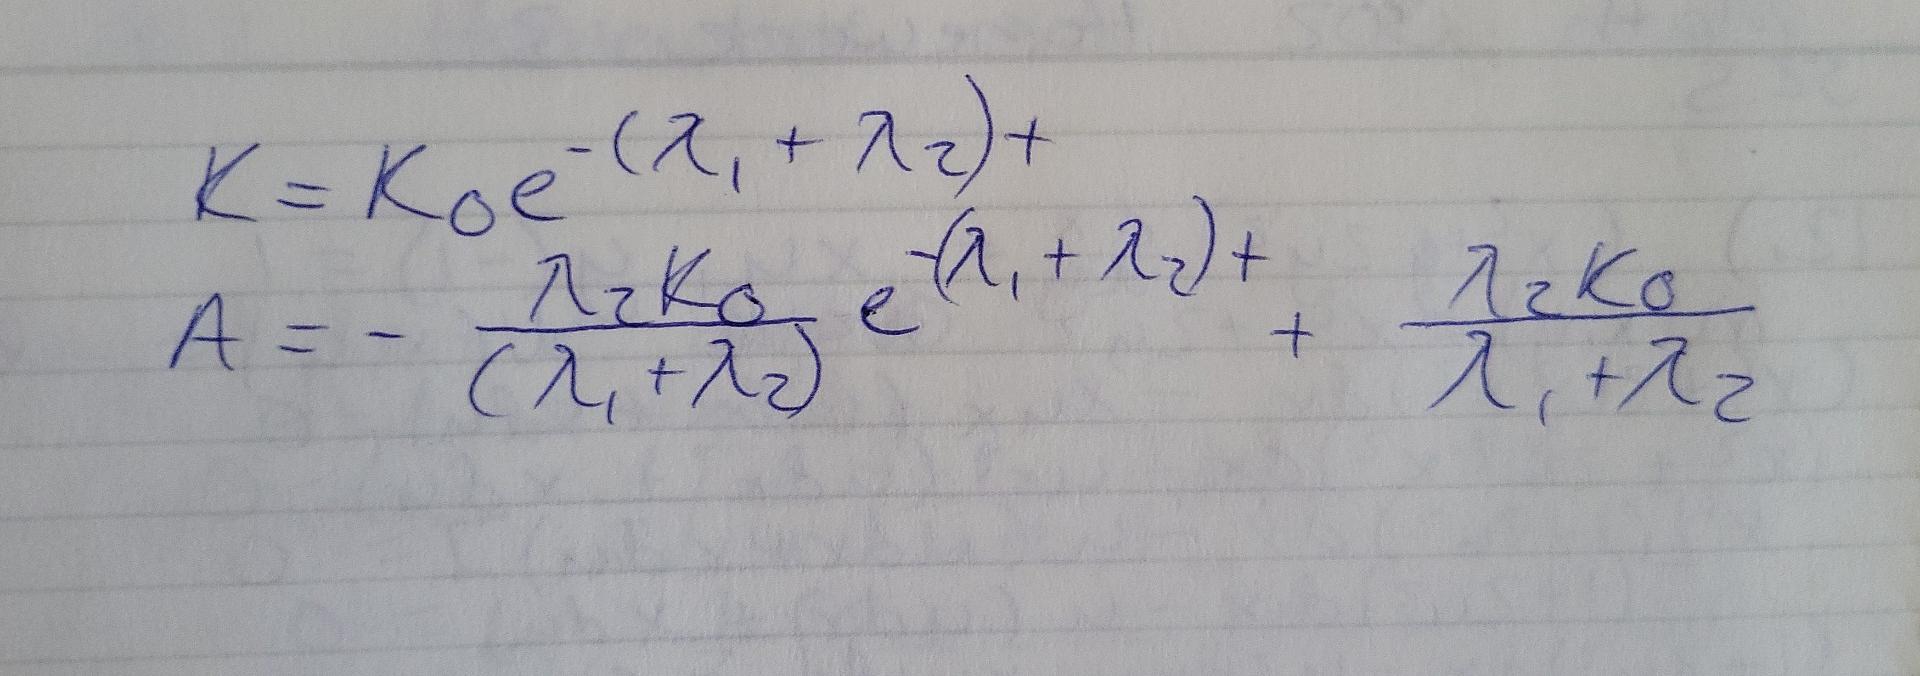 K = K₀e^{-(λ₁ + λ₂)t}
A = - \frac{λ₂K₀}{(λ₁ + λ₂)} e^{-(λ₁ + λ₂)t} + \frac{λ₂K₀}{λ₁ + λ₂}